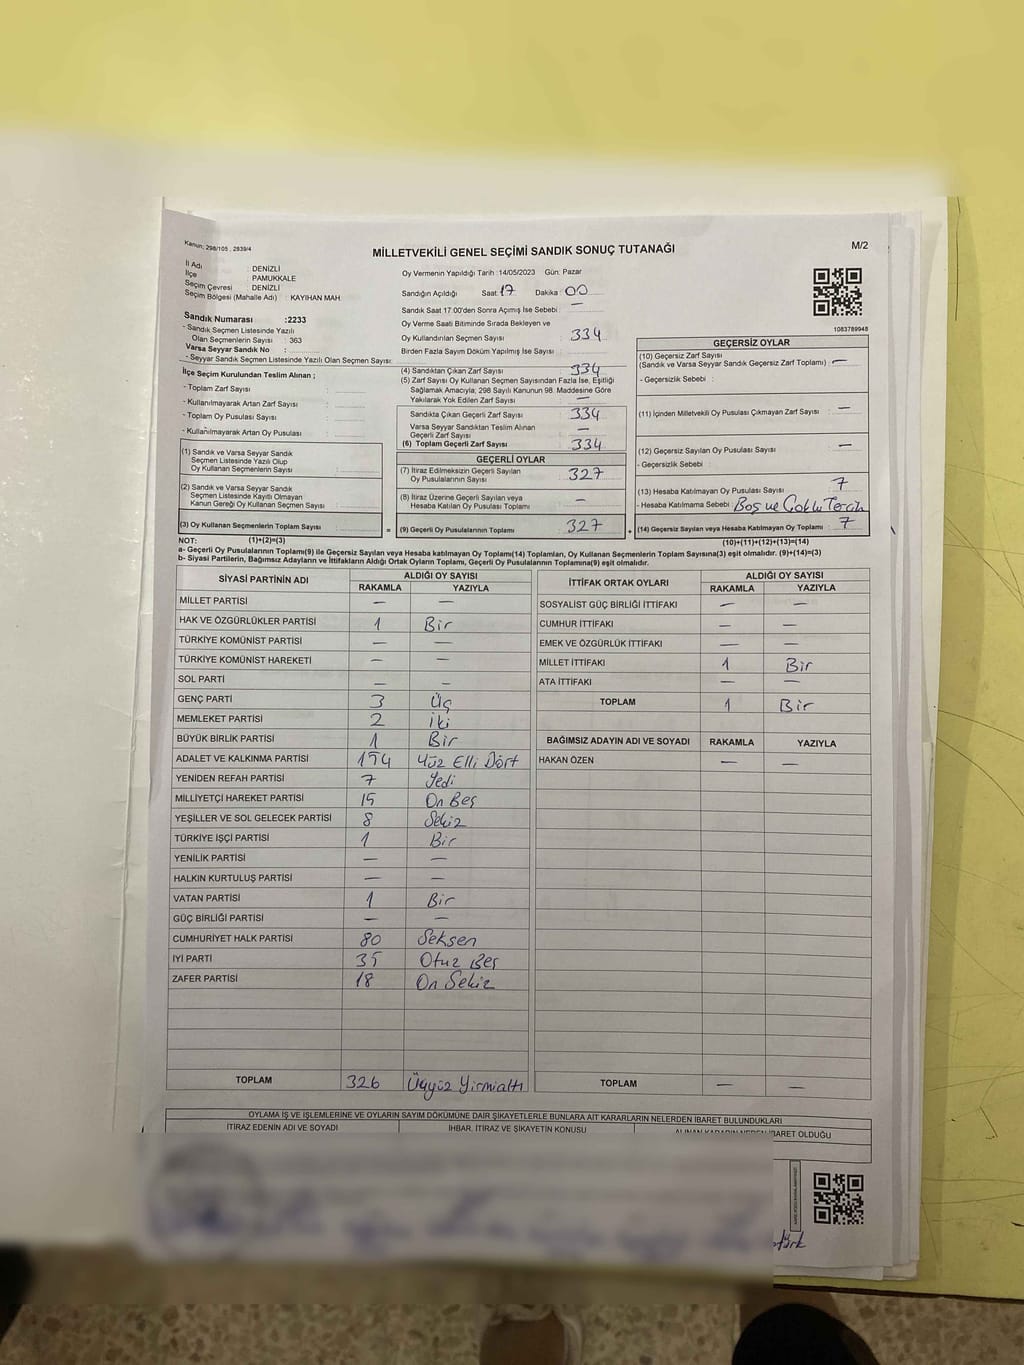 Kanun: 298/105 , 2839/4
MİLLETVEKİLİ GENEL SEÇİMİ SANDIK SONUÇ TUTANAĞI
M/2
İl Adı : DENİZLİ
İlçe : PAMUKKALE
Seçim Çevresi : DENİZLİ
Seçim Bölgesi (Mahalle Adı) : KAYIHAN MAH.
Sandık Numarası :2233
- Sandık Seçmen Listesinde Yazılı
Olan Seçmenlerin Sayısı : 363
Varsa Seyyar Sandık No :
- Seyyar Sandık Seçmen Listesinde Yazılı Olan Seçmen Sayısı:
İlçe Seçim Kurulundan Teslim Alınan ;
- Toplam Zarf Sayısı :
- Kullanılmayarak Artan Zarf Sayısı :
- Toplam Oy Pusulası Sayısı :
- Kullanılmayarak Artan Oy Pusulası :
(1) Sandık ve Varsa Seyyar Sandık
Seçmen Listesinde Yazılı Olup
Oy Kullanan Seçmenlerin Sayısı :
(2) Sandık ve Varsa Seyyar Sandık
Seçmen Listesinde Kayıtlı Olmayan
Kanun Gereği Oy Kullanan Seçmen Sayısı :
(3) Oy Kullanan Seçmenlerin Toplam Sayısı :
(1)+(2)=(3)
Oy Vermenin Yapıldığı Tarih :14/05/2023 Gün: Pazar
Sandığın Açıldığı Saat: 17 Dakika: 00
Sandık Saat 17.00'den Sonra Açımış İse Sebebi : —
Oy Verme Saati Bitiminde Sırada Bekleyen ve
Oy Kullandırılan Seçmen Sayısı : 334
Birden Fazla Sayım Döküm Yapılmış İse Sayısı :
(4) Sandıktan Çıkan Zarf Sayısı : 334
(5) Zarf Sayısı Oy Kullanan Seçmen Sayısından Fazla İse, Eşitliği
Sağlamak Amacıyla; 298 Sayılı Kanunun 98. Maddesine Göre
Yakılarak Yok Edilen Zarf Sayısı : —
Sandıkta Çıkan Geçerli Zarf Sayısı : 334
Varsa Seyyar Sandıktan Teslim Alınan
Geçerli Zarf Sayısı : —
(6) Toplam Geçerli Zarf Sayısı : 334
GEÇERLİ OYLAR
(7) İtiraz Edilmeksizin Geçerli Sayılan
Oy Pusulalarının Sayısı : 327
(8) İtiraz Üzerine Geçerli Sayılan veya
Hesaba Katılan Oy Pusulası Toplamı : —
= (9) Geçerli Oy Pusulalarının Toplamı : 327 +
1083789948
GEÇERSİZ OYLAR
(10) Geçersiz Zarf Sayısı
(Sandık ve Varsa Seyyar Sandık Geçersiz Zarf Toplamı) : —
- Geçersizlik Sebebi :
(11) İçinden Milletvekili Oy Pusulası Çıkmayan Zarf Sayısı : —
(12) Geçersiz Sayılan Oy Pusulası Sayısı : —
- Geçersizlik Sebebi
(13) Hesaba Katılmayan Oy Pusulası Sayısı : 7
- Hesaba Katılmama Sebebi : Boş ve Çoklu Tercih
(14) Geçersiz Sayılan veya Hesaba Katılmayan Oy Toplamı : 7
(10)+(11)+(12)+(13)=(14)
NOT:
a- Geçerli Oy Pusulalarının Toplamı(9) ile Geçersiz Sayılan veya Hesaba katılmayan Oy Toplamı(14) Toplamları, Oy Kullanan Seçmenlerin Toplam Sayısına(3) eşit olmalıdır. (9)+(14)=(3)
b- Siyasi Partilerin, Bağımsız Adayların ve İttifakların Aldığı Ortak Oyların Toplamı, Geçerli Oy Pusulalarının Toplamına(9) eşit olmalıdır.
SİYASİ PARTİNİN ADI ALDIĞI OY SAYISI
RAKAMLA YAZIYLA
MİLLET PARTİSİ — —
HAK VE ÖZGÜRLÜKLER PARTİSİ 1 Bir
TÜRKİYE KOMÜNİST PARTİSİ — —
TÜRKİYE KOMÜNİST HAREKETİ — —
SOL PARTİ — —
GENÇ PARTİ 3 Üç
MEMLEKET PARTİSİ 2 iki
BÜYÜK BİRLİK PARTİSİ 1 Bir
ADALET VE KALKINMA PARTİSİ 154 Yüz Elli Dört
YENİDEN REFAH PARTİSİ 7 Yedi
MİLLİYETÇİ HAREKET PARTİSİ 15 On Beş
YEŞİLLER VE SOL GELECEK PARTİSİ 8 Sekiz
TÜRKİYE İŞÇİ PARTİSİ 1 Bir
YENİLİK PARTİSİ — —
HALKIN KURTULUŞ PARTİSİ — —
VATAN PARTİSİ 1 Bir
GÜÇ BİRLİĞİ PARTİSİ — —
CUMHURİYET HALK PARTİSİ 80 Seksen
İYİ PARTİ 35 Otuz Beş
ZAFER PARTİSİ 18 On Sekiz
TOPLAM 326 Üçyüz Yirmialtı
İTTİFAK ORTAK OYLARI ALDIĞI OY SAYISI
RAKAMLA YAZIYLA
SOSYALİST GÜÇ BİRLİĞİ İTTİFAKI — —
CUMHUR İTTİFAKI — —
EMEK VE ÖZGÜRLÜK İTTİFAKI — —
MİLLET İTTİFAKI 1 Bir
ATA İTTİFAKI — —
TOPLAM 1 Bir
BAĞIMSIZ ADAYIN ADI VE SOYADI RAKAMLA YAZIYLA
HAKAN ÖZEN — —
TOPLAM — —
OYLAMA İŞ VE İŞLEMLERİNE VE OYLARIN SAYIM DÖKÜMÜNE DAİR ŞİKAYETLERLE BUNLARA AİT KARARLARIN NELERDEN İBARET BULUNDUKLARI
İTİRAZ EDENİN ADI VE SOYADI İHBAR, İTİRAZ VE ŞİKAYETİN KONUSU ALINAN KARARIN NEDEN İBARET OLDUĞU